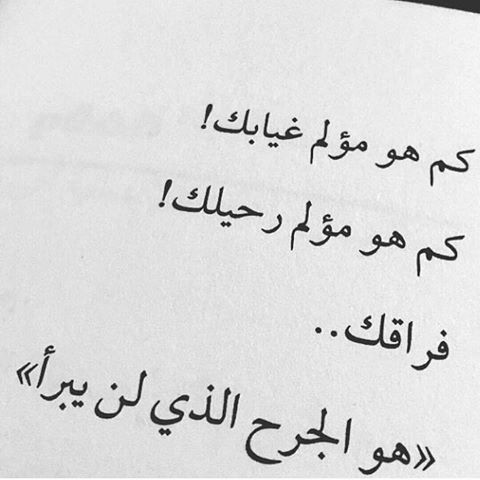 كم هو مؤلم غيابك!
كم هو مؤلم رحيلك!
فراقك..
«هو الجرح الذي لن يبرأ»